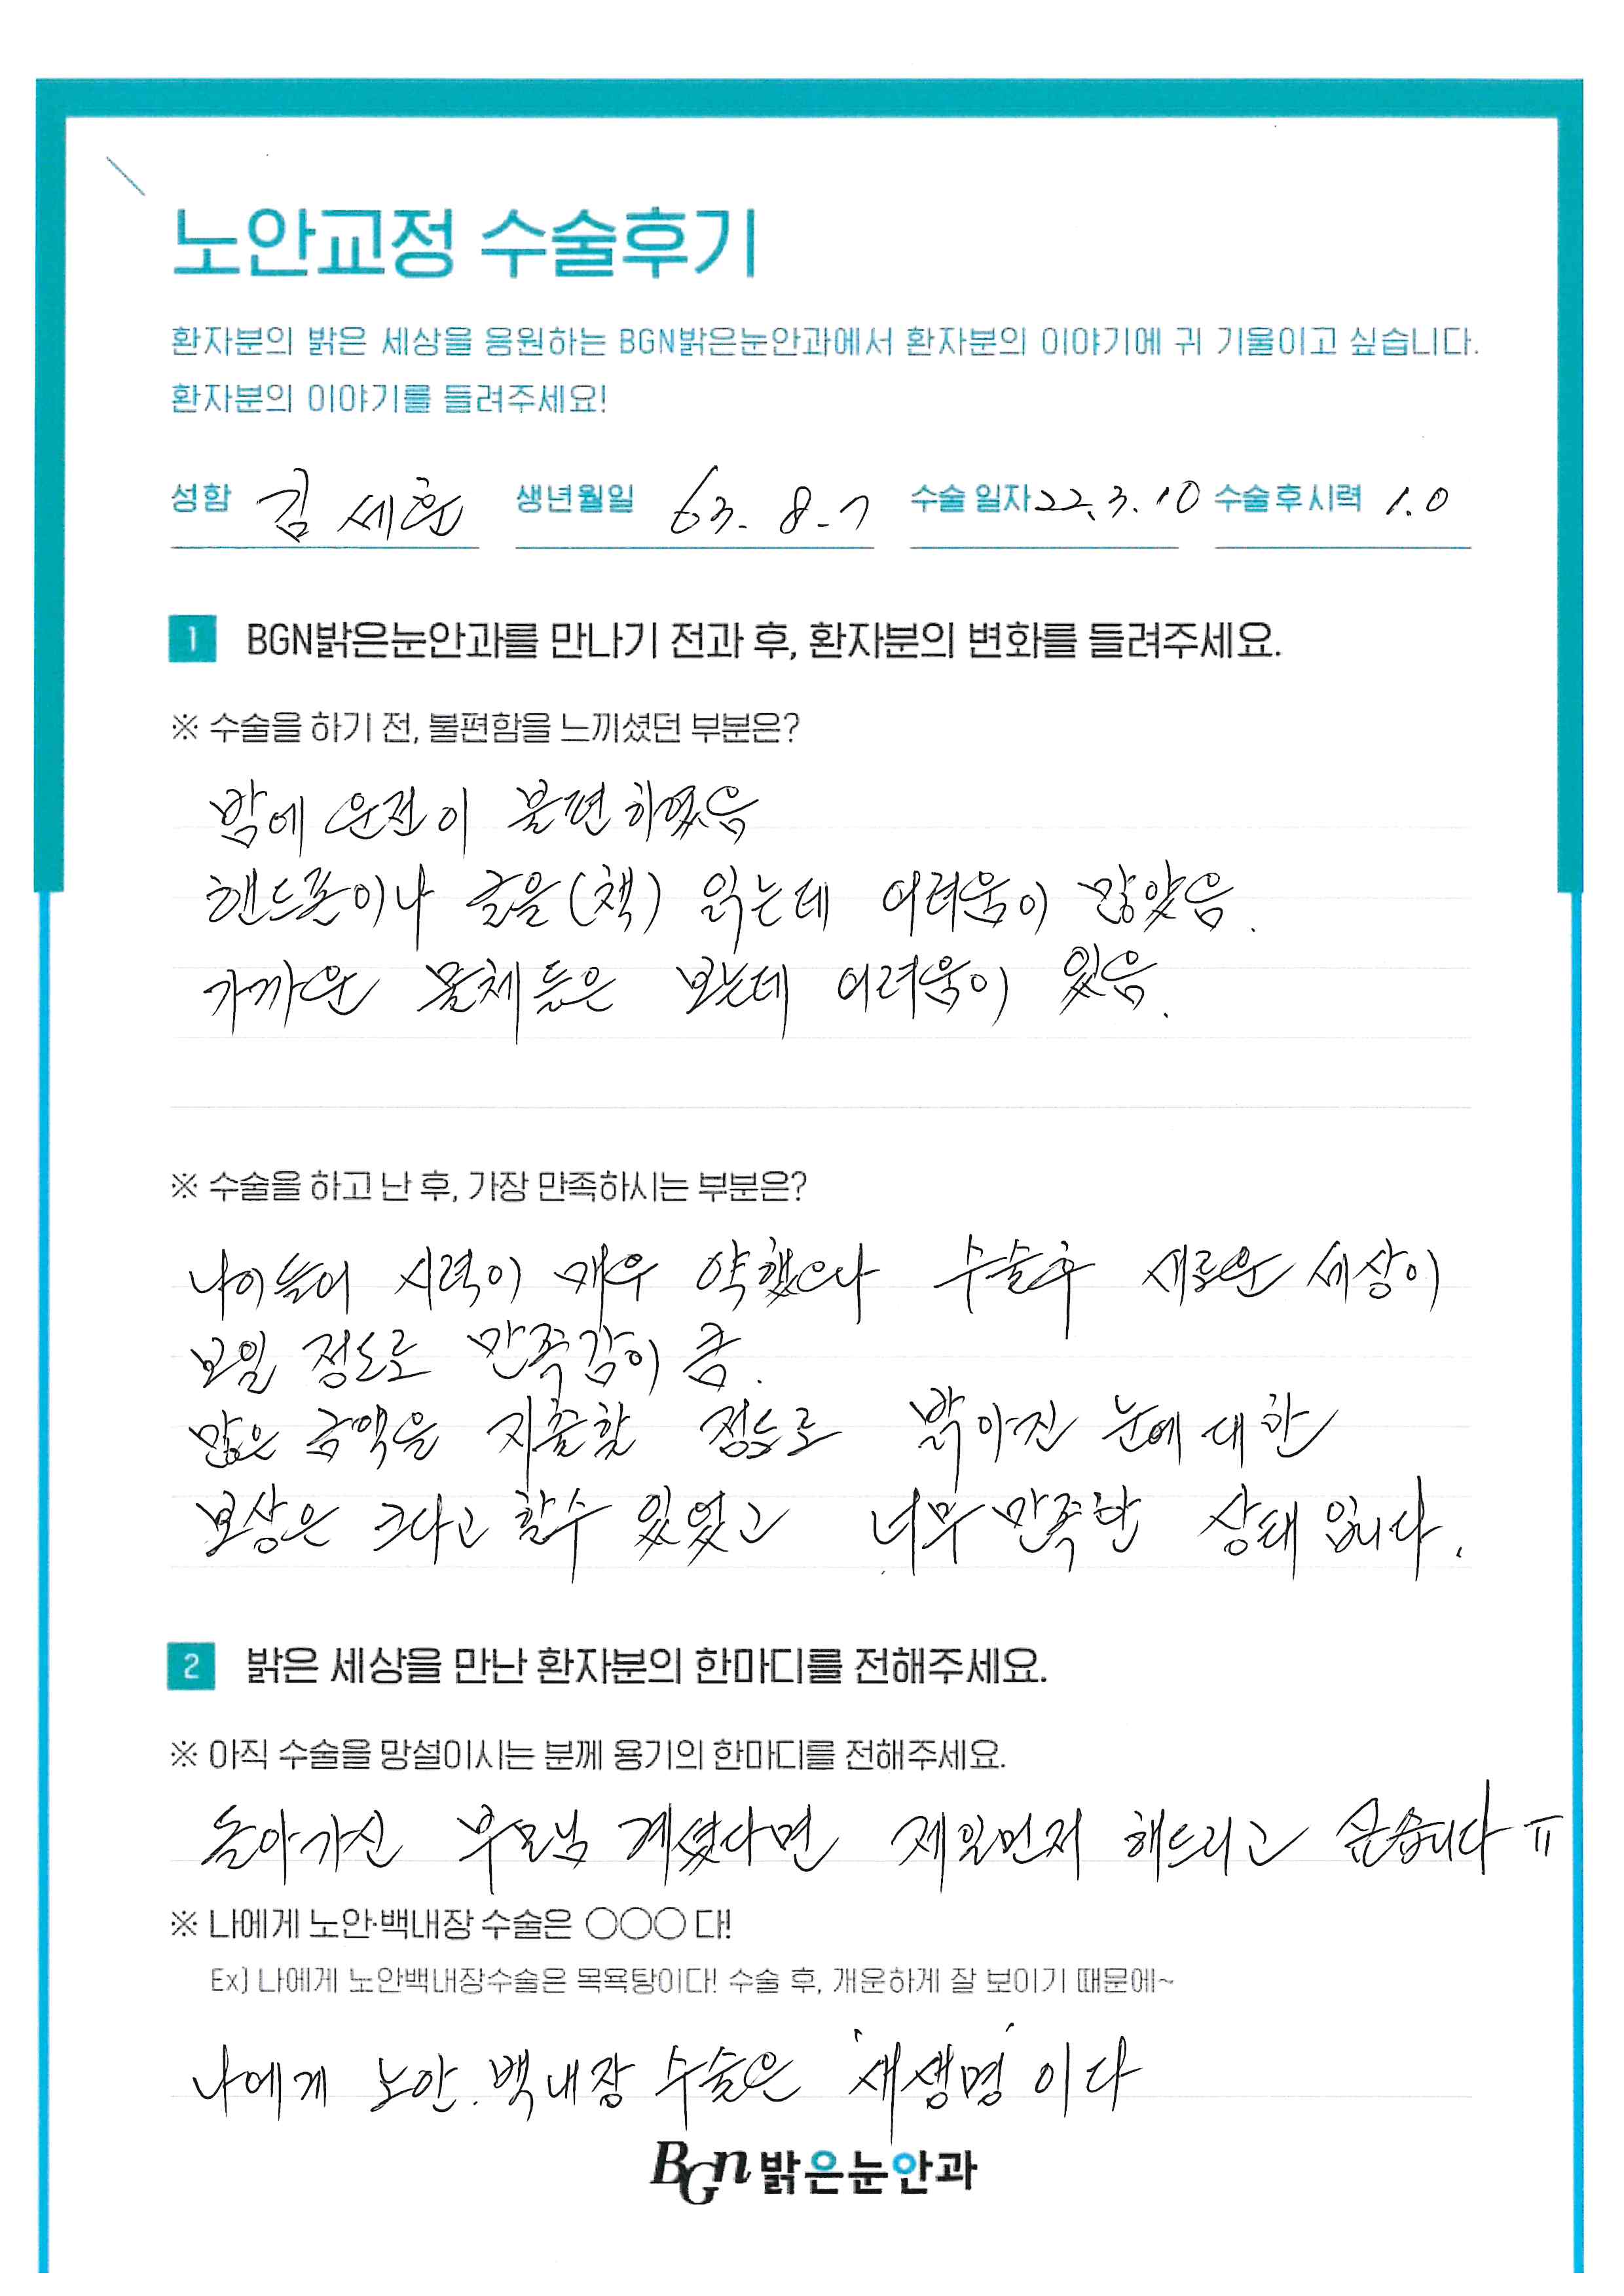 노안교정 수술후기
환자분의 밝은 세상을 응원하는 BGN밝은눈안과에서 환자분의 이야기에 귀 기울이고 싶습니다.
환자분의 이야기를 들려주세요!
성함 김세훈 생년월일 63. 8. 7 수술 일자 22. 3. 10 수술 후 시력 1.0
1 BGN밝은눈안과를 만나기 전과 후, 환자분의 변화를 들려주세요.
※ 수술을 하기 전, 불편함을 느끼셨던 부분은?
밤에 운전이 불편하였음
핸드폰이나 글을(책) 읽는데 어려움이 많았음.
가까운 물체들은 보는데 어려움이 있음.
※ 수술을 하고 난 후, 가장 만족하시는 부분은?
나이들어 시력이 매우 약했으나 수술후 새로운 세상이
보일 정도로 만족감이 큼.
많은 금액을 지출할 정도로 밝아진 눈에 대한
보상은 크다고 할수 있었고 너무 만족한 상태 입니다.
2 밝은 세상을 만난 환자분의 한마디를 전해주세요.
※ 아직 수술을 망설이시는 분께 용기의 한마디를 전해주세요.
돌아가신 부모님 계셨다면 제일먼저 해드리고 싶습니다 ㅠ
※ 나에게 노안·백내장 수술은 ○○○ 다!
Ex) 나에게 노안백내장수술은 목욕탕이다! 수술 후, 개운하게 잘 보이기 때문에~
나에게 노안.백내장 수술은 '새생명' 이다
BGN 밝은눈안과